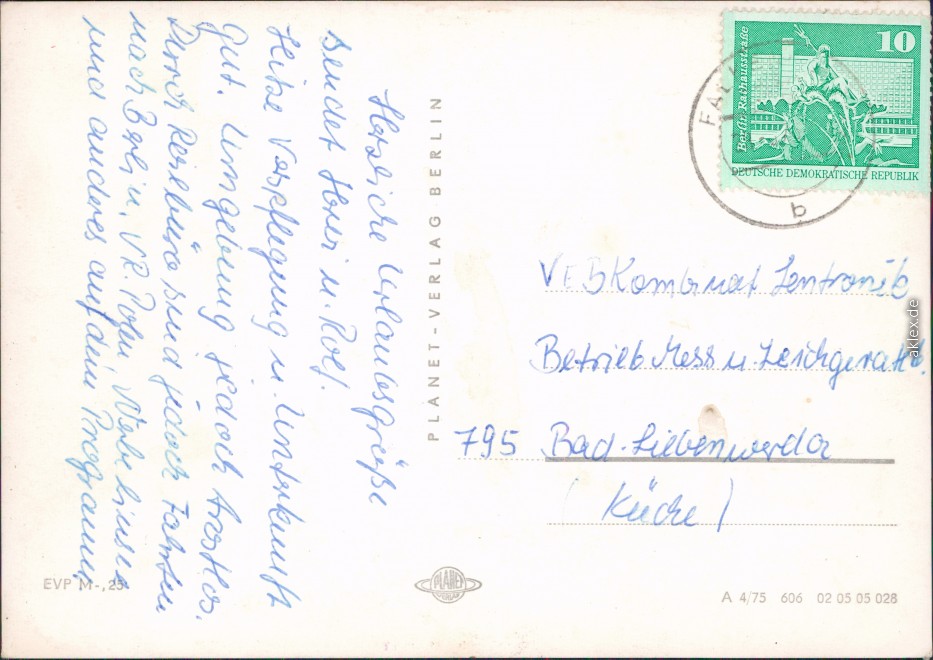 Herzliche Urlaubsgrüße
sendet Horst u. Rolf.
Verpflegung u. Unterkunft
gut. Umgebung jedoch trostlos.
Durch Reisebüro sind jedoch Fahrten
nach Berlin, VR. Polen,
und anderes auf dem Programm.
PLANET-VERLAG BERLIN
EVP M-,25
PLANET VERLAG
A 4/75 606 02 05 05 028
10
Berlin, Rathausstraße
DEUTSCHE DEMOKRATISCHE REPUBLIK
b
VEB Kombinat Zentronik
Betrieb Mess u. Zeichgeräte.
795 Bad-Liebenwerda
(Küche)
aklex.de